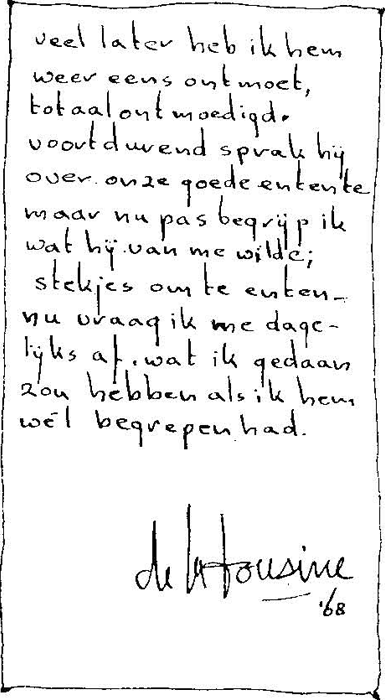 veel later heb ik hem
weer eens ontmoet,
totaal ontmoedigd.
voortdurend sprak hij
over onze goede entente
maar nu pas begrijp ik
wat hij van me wilde;
stekjes om te enten-
nu vraag ik me dage-
lijks af, wat ik gedaan
zou hebben als ik hem
wél begrepen had.
de la Housine
'68